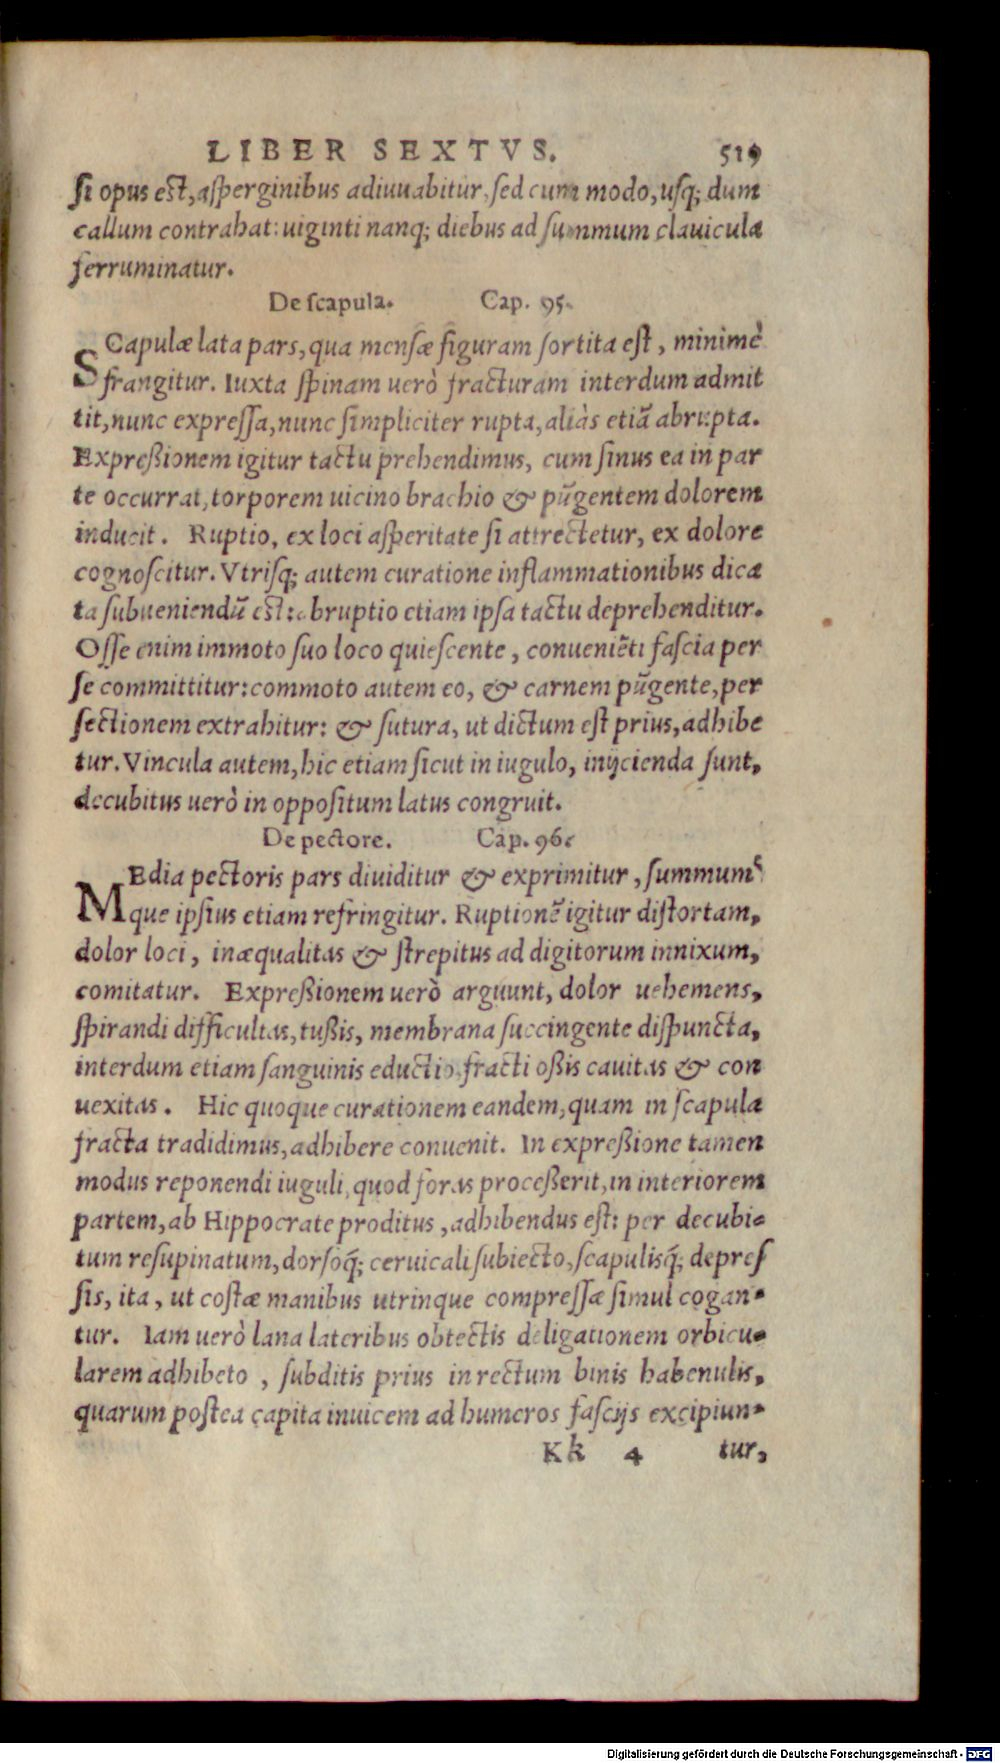 LIBER SEXTVS. 519
si opus est, asperginibus adiuuabitur, sed cum modo, usq; dum
callum contrahat: uiginti nanq; diebus ad summum clauiculæ
ferruminatur.
De scapula. Cap. 95.
SCapulæ lata pars, qua mensæ figuram sortita est, minimè
frangitur. Iuxta spinam uerò fracturam interdum admit
tit, nunc expressa, nunc simpliciter rupta, aliàs etiā abrupta.
Expreßionem igitur tactu prehendimus, cum sinus ea in par
te occurrat, torporem uicino brachio & pūgentem dolorem
inducit. Ruptio, ex loci asperitate si attrectetur, ex dolore
cognoscitur. Vtrisq; autem curatione inflammationibus dica
ta subueniendū est: abruptio etiam ipsa tactu deprehenditur.
Osse enim immoto suo loco quiescente, conueniēti fascia per
se committitur: commoto autem eo, & carnem pūgente, per
sectionem extrahitur: & sutura, ut dictum est prius, adhibe
tur. Vincula autem, hic etiam sicut in iugulo, inijcienda sunt,
decubitus uerò in oppositum latus congruit.
De pectore. Cap. 96.
MEdia pectoris pars diuiditur & exprimitur, summum
que ipsius etiam refringitur. Ruptionē igitur distortam,
dolor loci, inæqualitas & strepitus ad digitorum innixum,
comitatur. Expreßionem uerò arguunt, dolor uehemens,
spirandi difficultas, tußis, membrana succingente dispuncta,
interdum etiam sanguinis eductio, fracti oßis cauitas & con
uexitas. Hic quoque curationem eandem, quam in scapula
fracta tradidimus, adhibere conuenit. In expreßione tamen
modus reponendi iuguli, quod foras proceßerit, in interiorem
partem, ab Hippocrate proditus, adhibendus est: per decubi-
tum resupinatum, dorsoq́; ceruicali subiecto, scapulisq́; depres
sis, ita, ut costæ manibus utrinque compressæ simul cogan-
tur. Iam uerò lana lateribus obtectis deligationem orbicu-
larem adhibeto, subditis prius in rectum binis habenulis,
quarum postea capita inuicem ad humeros fascijs excipiun-
Kk 4 tur,
Digitalisierung gefördert durch die Deutsche Forschungsgemeinschaft - DFG